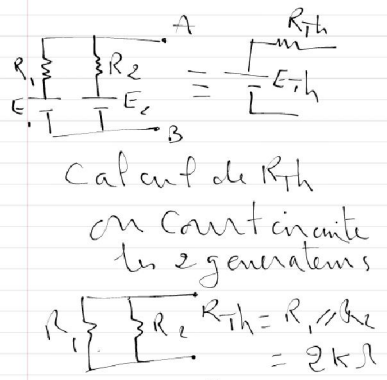 A
R_Th
R_1 R_2 ≡ E_Th
E_1 E_2
B
Calcul de R_Th
on court circuite
les 2 generateurs
R_1 R_2 R_Th = R_1 // R_2
= 2KΩ